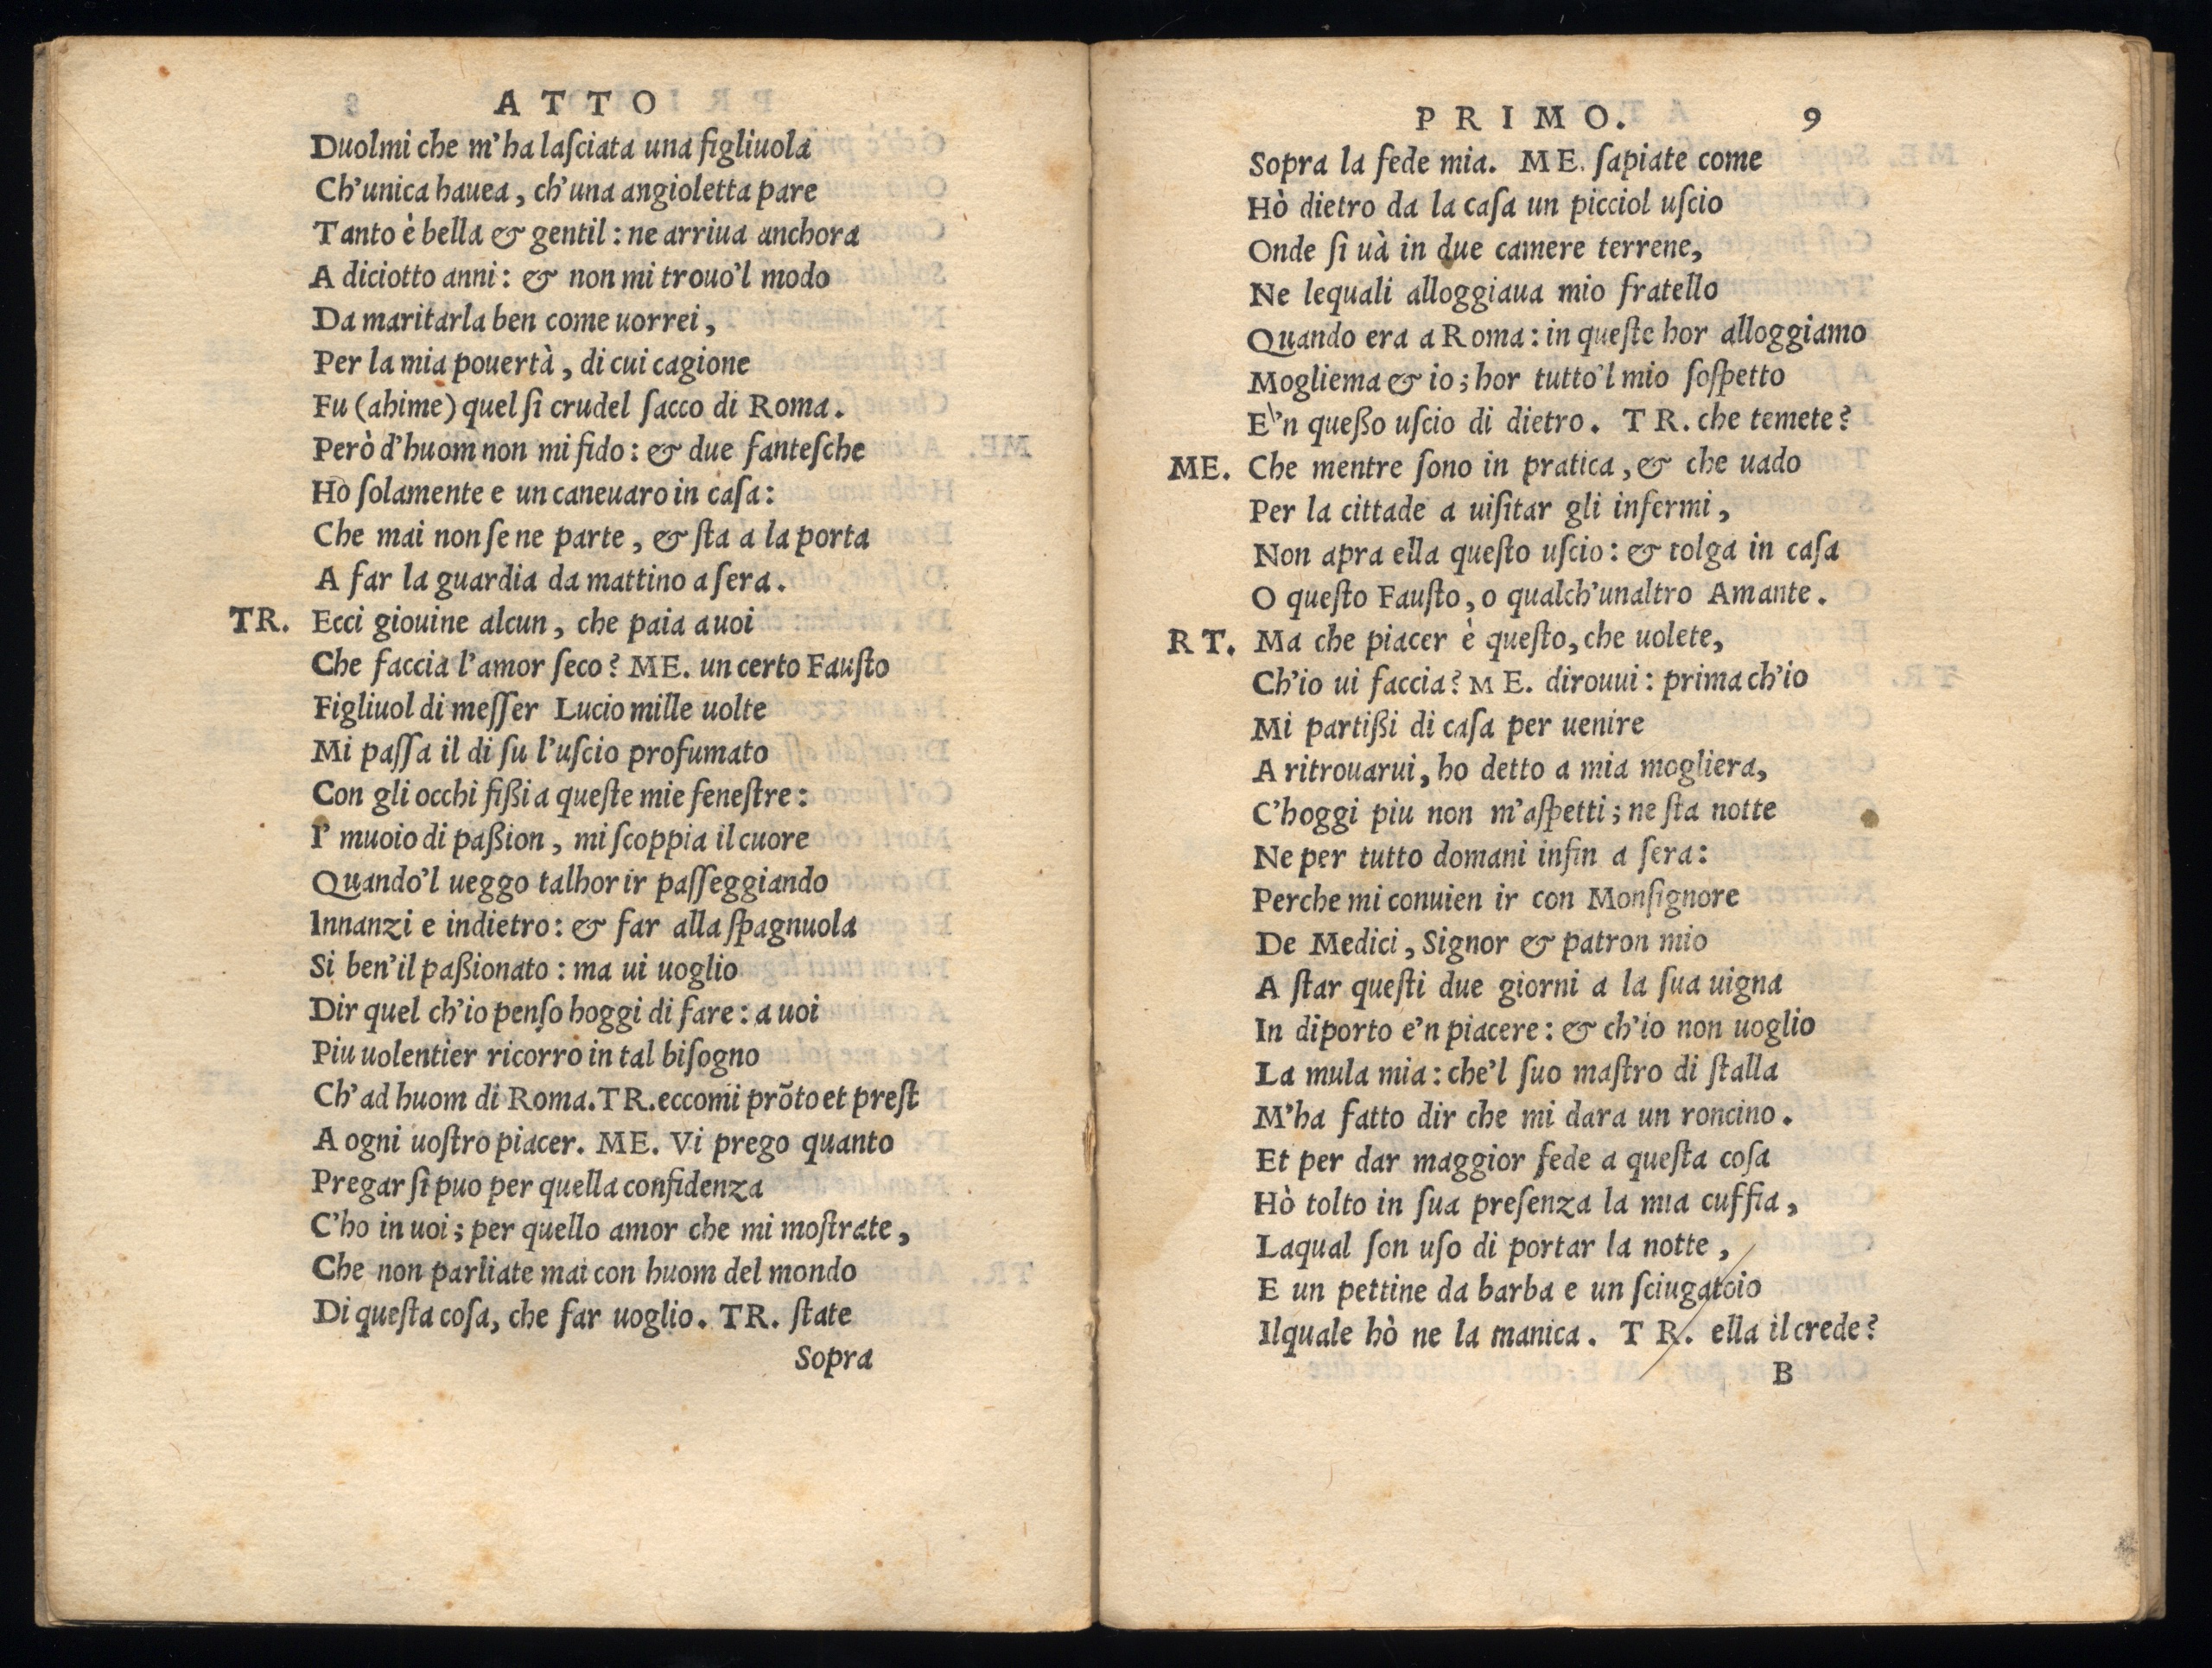 ATTO
Duolmi che m'ha laſciata una figliuola
Ch'unica hauea, ch'una angioletta pare
Tanto è bella & gentil: ne arriua anchora
A diciotto anni: & non mi trouo'l modo
Da maritarla ben come uorrei,
Per la mia pouertà, di cui cagione
Fu (ahime) quel ſi crudel ſacco di Roma.
Però d'huom non mi fido: & due fanteſche
Hò ſolamente e un caneuaro in caſa:
Che mai non ſe ne parte, & ſta a la porta
A far la guardia da mattino a ſera.
TR. Ecci giouine alcun, che paia a uoi
Che faccia l'amor ſeco? ME. un certo Fauſto
Figliuol di meſſer Lucio mille uolte
Mi paſſa il di ſu l'uſcio profumato
Con gli occhi fißi a queſte mie feneſtre:
I' muoio di paßion, mi ſcoppia il cuore
Quando'l ueggo talhor ir paſſeggiando
Innanzi e indietro: & far alla ſpagnuola
Si ben'il paßionato: ma ui uoglio
Dir quel ch'io penſo hoggi di fare: a uoi
Piu uolentier ricorro in tal biſogno
Ch'ad huom di Roma. TR. eccomi prõto et preſt
A ogni uoſtro piacer. ME. Vi prego quanto
Pregar ſi puo per quella confidenza
C'ho in uoi; per quello amor che mi moſtrate,
Che non parliate mai con huom del mondo
Di queſta coſa, che far uoglio. TR. ſtate
Sopra
PRIMO. 9
Sopra la fede mia. ME. ſapiate come
Hò dietro da la caſa un picciol uſcio
Onde ſi uà in due camere terrene,
Ne lequali alloggiaua mio fratello
Quando era a Roma: in queſte hor alloggiamo
Mogliema & io; hor tutto'l mio ſoſpetto
E'n queßo uſcio di dietro. TR. che temete?
ME. Che mentre ſono in pratica, & che uado
Per la cittade a uiſitar gli infermi,
Non apra ella queſto uſcio: & tolga in caſa
O queſto Fauſto, o qualch'unaltro Amante.
RT. Ma che piacer è queſto, che uolete,
Ch'io ui faccia? ME. dirouui: prima ch'io
Mi partißi di caſa per uenire
A ritrouarui, ho detto a mia mogliera,
C'hoggi piu non m'aſpetti; ne ſta notte
Ne per tutto domani infin a ſera:
Perche mi conuien ir con Monſignore
De Medici, Signor & patron mio
A ſtar queſti due giorni a la ſua uigna
In diporto e'n piacere: & ch'io non uoglio
La mula mia: che'l ſuo maſtro di ſtalla
M'ha fatto dir che mi dara un roncino.
Et per dar maggior fede a queſta coſa
Hò tolto in ſua preſenza la mia cuffia,
Laqual ſon uſo di portar la notte,
E un pettine da barba e un ſciugatoio
Ilquale hò ne la manica. TR. ella il crede?
B